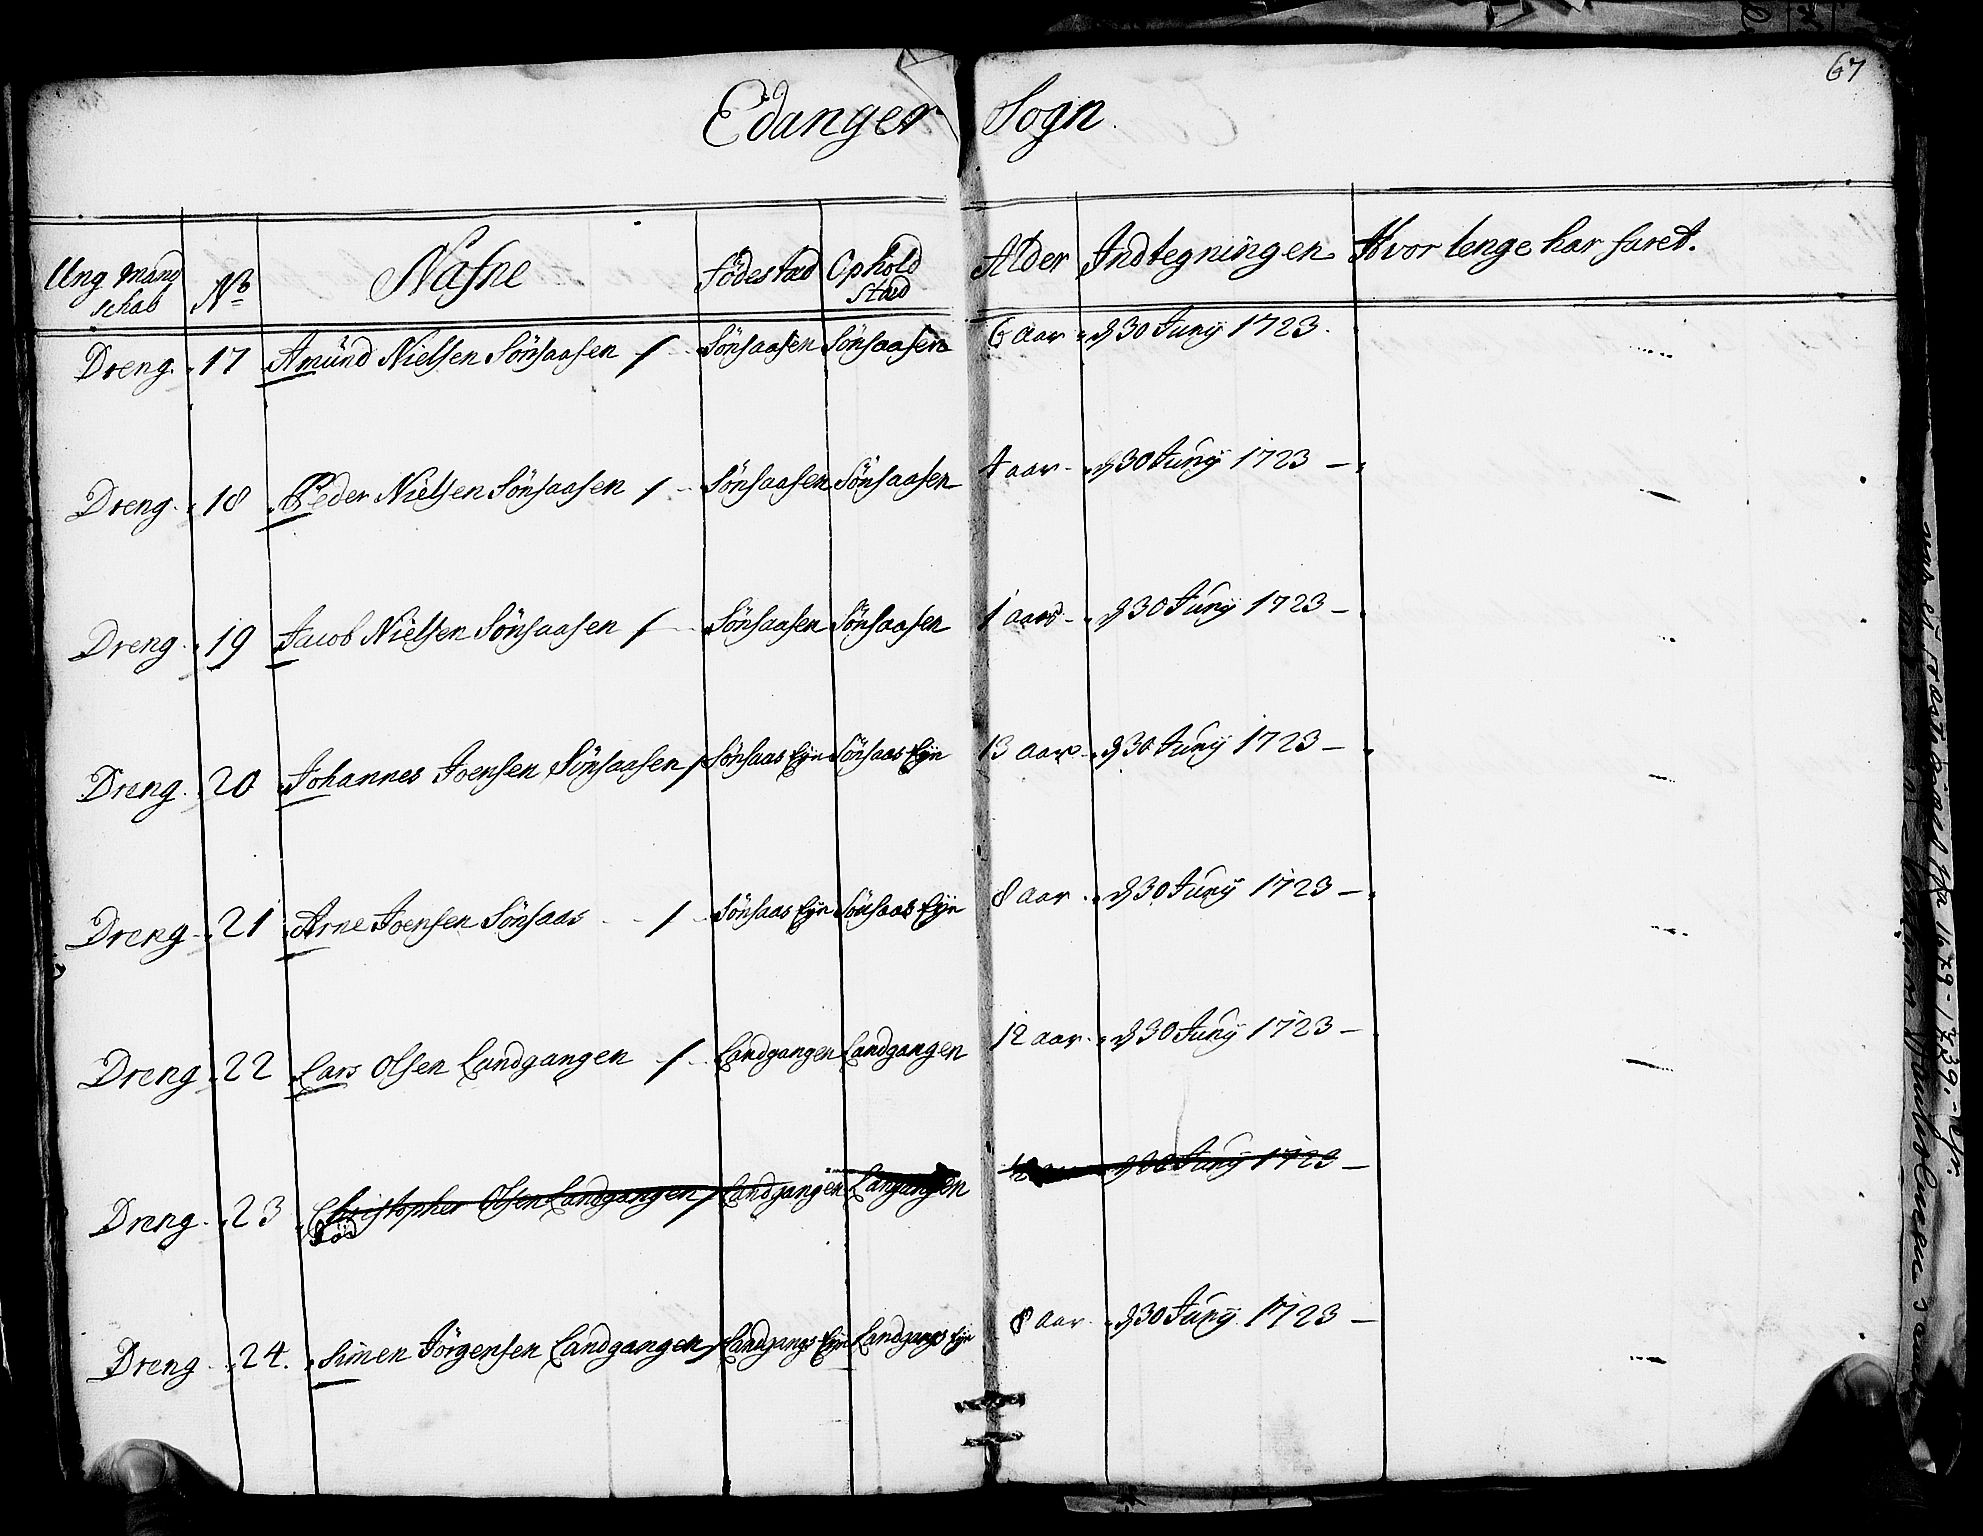 67
Edanger Sogn.
Ung Mand schab No Nafne Födestæd Ophold Stæd Alder Indtegningen Hvor lenge har faret.
Dreng 17 Amünd Nielsen Sönsaasen / Sönsaasen Sönsaasen 6 aar d 30 Junÿ 1723.
Dreng 18 Peder Nielsen Sönsaasen / Sönsaasen Sönsaasen 4 aar d 30 Junÿ 1723 –
Dreng 19 Jacob Nielsen Sönsaasen / Sönsaasen Sönsaasen 1 aars d 30 Junÿ 1723 –
Dreng 20 Johannes Joensen Sönsaasen / Sönsaas Eÿe Sönsaas Eÿe 13 aar d 30 Junÿ 1723 –
Dreng 21 Arne Joensen Sönsaas / Sönsaas Eÿe Sönsaas Eÿe 8 aar d 30 Junÿ 1723 –
Dreng 22 Lars Olsen Landgangen / Landgangen Landgangen 12 aar d 30 Junÿ 1723 –
Dreng 23 Christopher Olsen Landgangen / Landgangen Langangen d 30 Junÿ 1723 –
Död
Dreng 24. Simen Jörgensen Landgangen / Landgangs Eÿe Landgangs Eÿe 8 aar d 30 Junÿ 1723 –